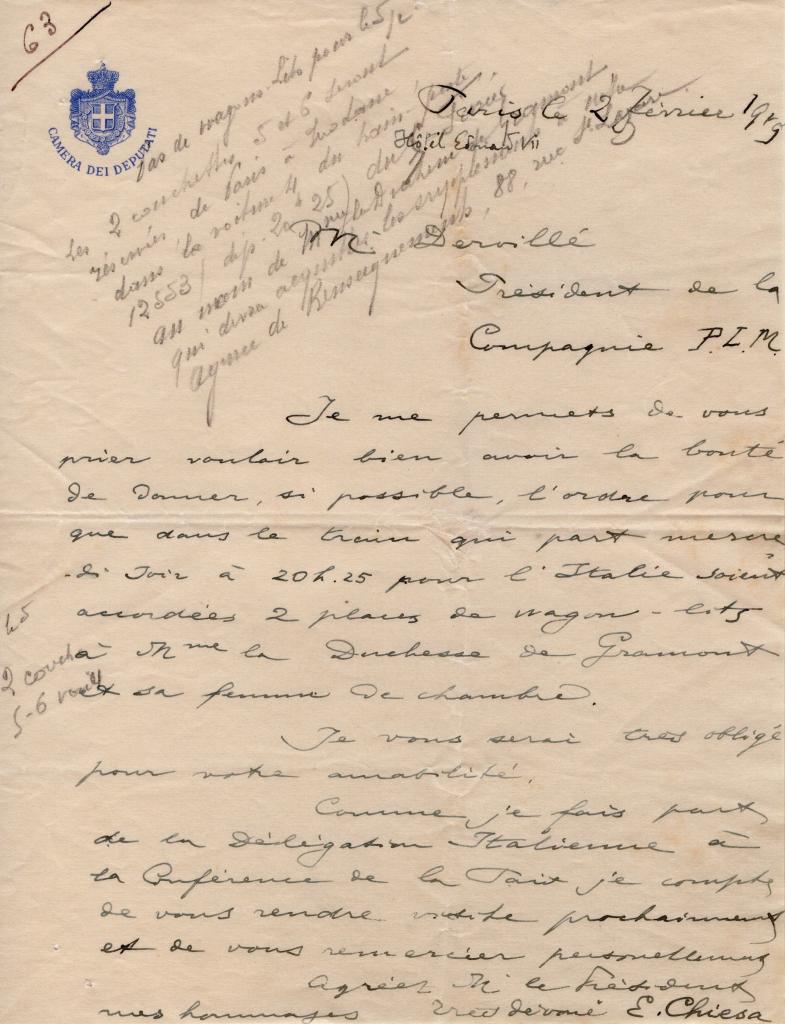 63
CAMERA DEI DEPUTATI
pas de wagons-lits pour le 5/2
Les 2 couchettes 5 et 6 seront
réservées de Paris à Modane
dans la voiture 4 du train
12553 (dép. 20h25) du
au nom de Mme la Duchesse de Gramont
qui devra acquitter les suppléments à notre
agence de Renseignements, 88, rue St Lazare
Paris le 2 Février 1919
Hôtel Edouard VII
M. Dervillé
Président de la
Compagnie P.L.M.
Je me permets de vous
prier vouloir bien avoir la bonté
de donner, si possible, l'ordre pour
que dans le train qui part mercre
-di soir à 20h.25 pour l'Italie soient
accordées 2 places de wagon-lits
à Mme la Duchesse de Gramont
et sa femme de chambre.
le 5
2 couch
5-6
Je vous serai très obligé
pour votre amabilité.
Comme je fais part
de la Délégation Italienne à
la Conférence de la Paix je compte
de vous rendre visite prochainement
et de vous remercier personellement
Agréez M. le Président
mes hommages très dévoué E. Chiesa